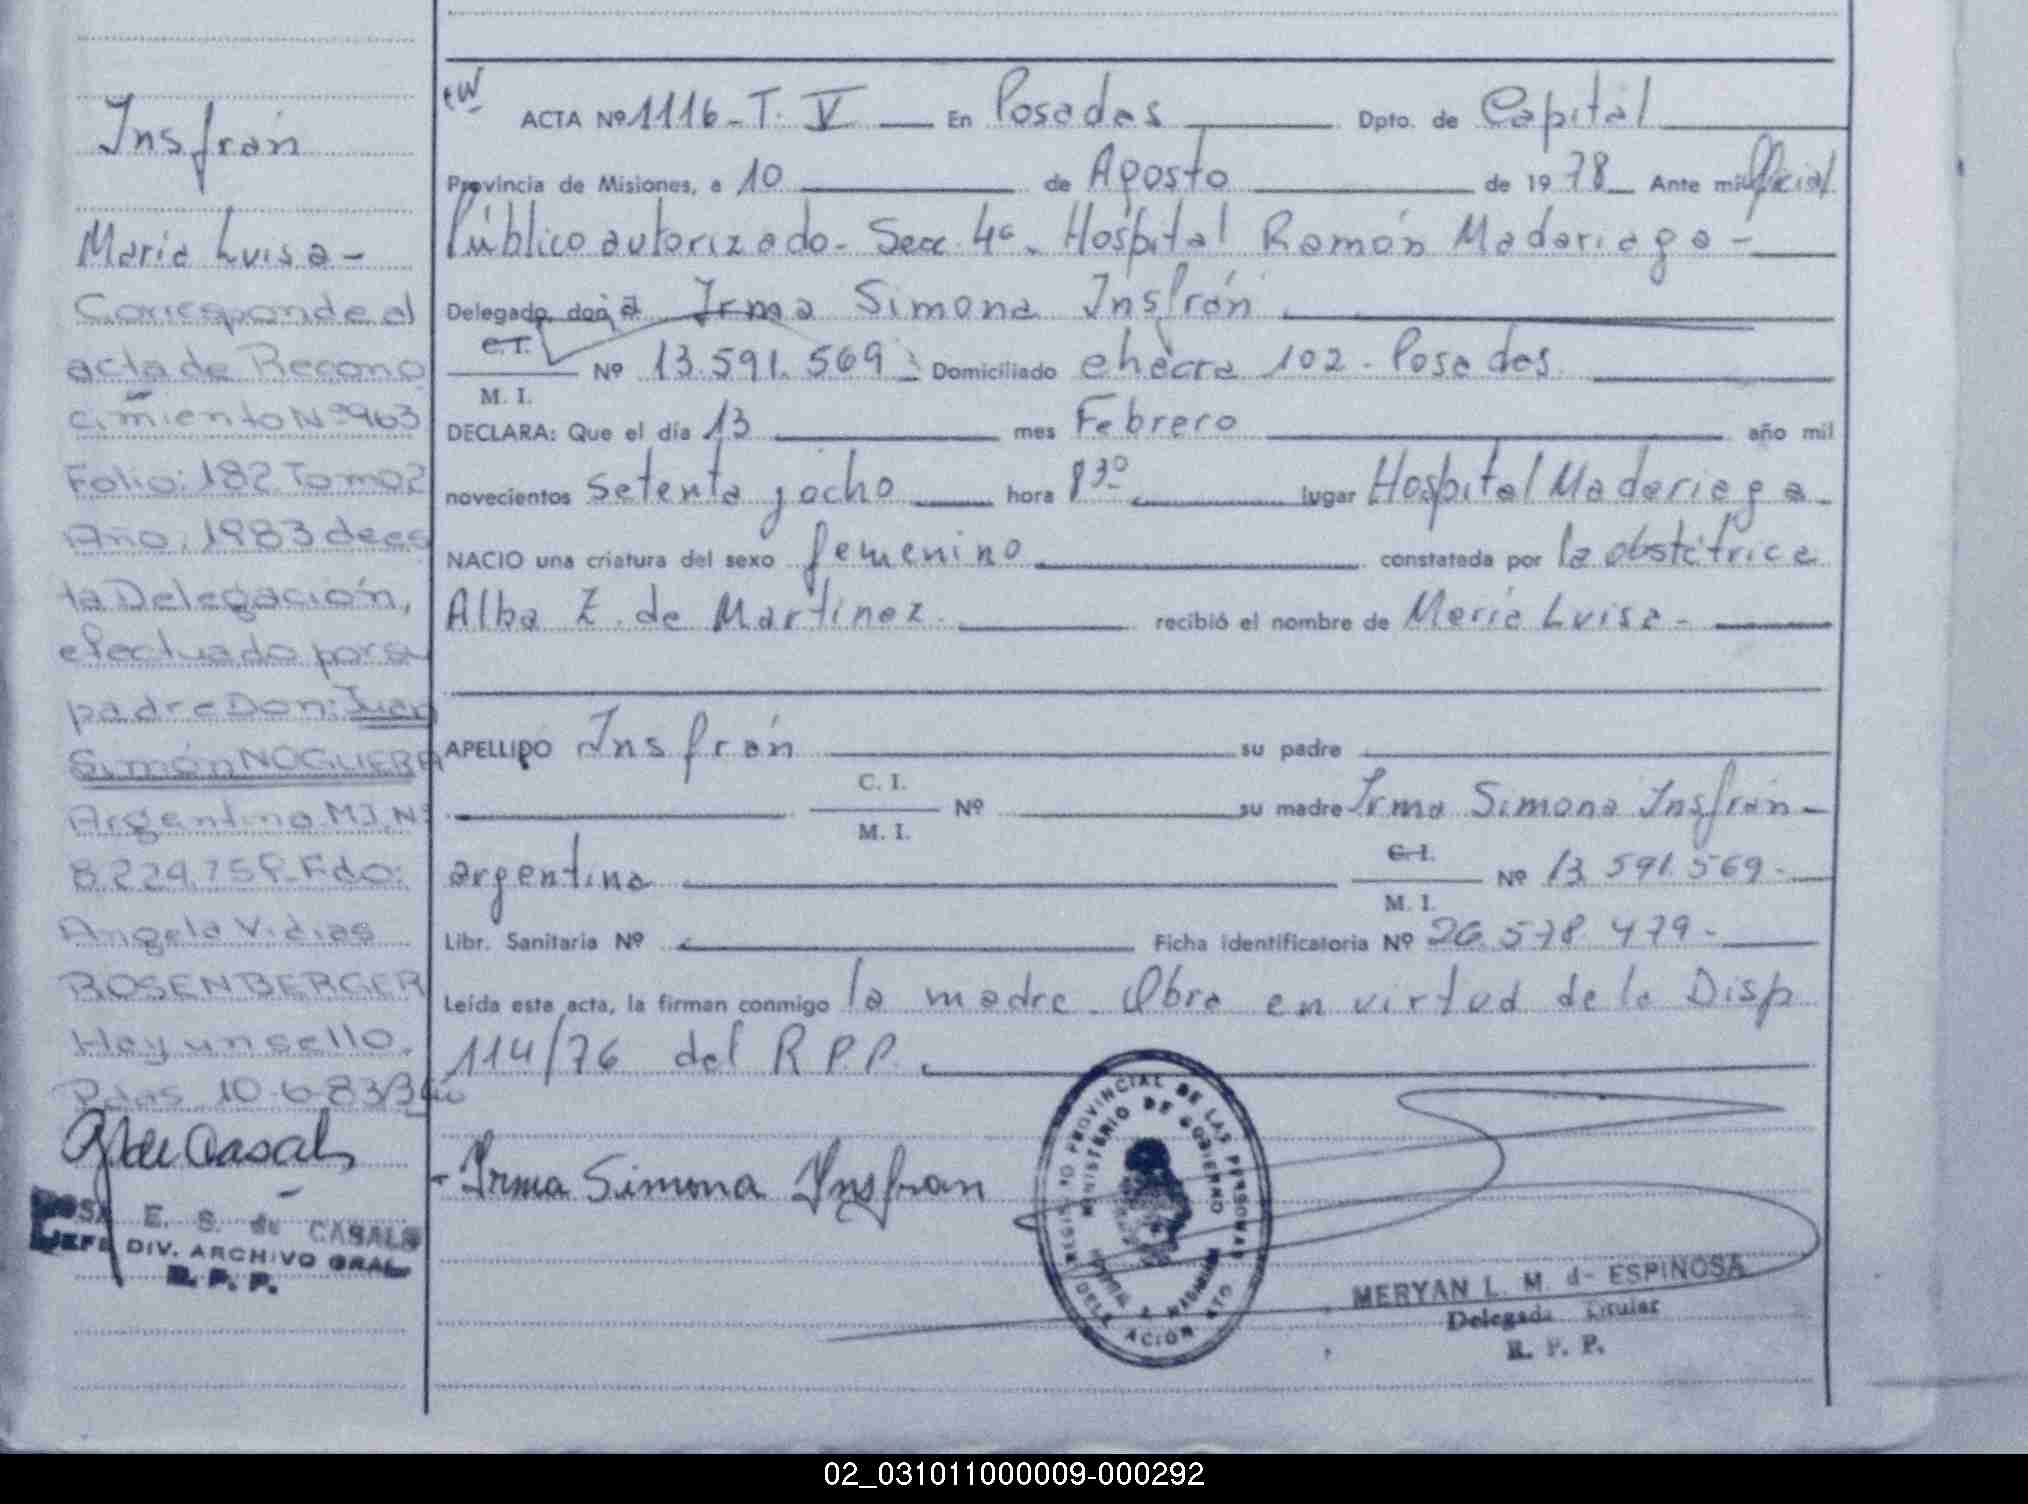 Insfrán
María Luisa -
Corresponde al
acta de Recono
cimiento Nº 963
Folio: 182 Tomo 2
Año: 1983 de es
ta Delegación,
efectuado por su
padre Don: Juan
Simón NOGUERA
Argentino M.I. Nº
8.224.759. Fdo:
Angela V. dias
ROSENBERGER
Hay un sello.
Pdas 10-6-83
E. S. de CASALS
JEFE DIV. ARCHIVO GRAL.
R. P. P.
ACTA Nº 1116 - T. V En Posadas Dpto. de Capital
Provincia de Misiones, a 10 de Agosto de 1978 Ante mi Oficial
Público autorizado - Secc. 4ª - Hospital Ramón Madariaga -
Delegado, doña Irma Simona Insfrán
C.I.
M. I.
Nº 13.591.569 Domiciliado chacra 102 - Posadas
DECLARA: Que el día 13 mes Febrero año mil
novecientos setenta y ocho hora 8 30 lugar Hospital Madariaga -
NACIO una criatura del sexo femenino constatada por la obstétrica
Alba Z. de Martinez - recibió el nombre de María Luisa -
APELLIDO Insfrán su padre
C. I.
M. I.
Nº su madre Irma Simona Insfrán -
argentina
C. I.
M. I.
Nº 13.591.569 -
Libr. Sanitaria Nº Ficha identificatoria Nº 26.578.479 -
Leída este acta, la firman conmigo la madre - Obra en virtud de la Disp
114/76 del R.P.P.
- Irma Simona Insfran
REGISTRO PROVINCIAL DE LAS PERSONAS
MINISTERIO DE GOBIERNO
MERYAN L. M. d- ESPINOSA
Delegada Titular
R. P. P.
02_031011000009-000292